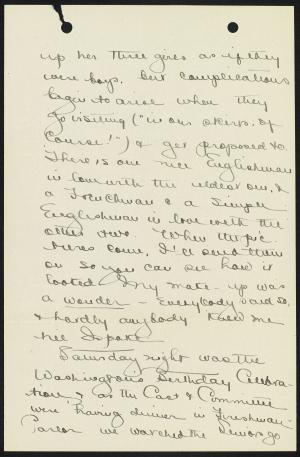 up her three girls as if they
were boys, but complications
begin to arise when they
go visiting ("in our skirts, of
course!") & get proposed to.
There is one nice Englishman
in love with the oldest one, &
a Frenchman & a simple
Englishman in love with the
other two. When the pic-
tures come, I'll send them
on so you can see how it
looked. My make-up was
a wonder - Everybody said so,
& hardly anybody knew me
till I spoke.
Saturday night was the
Washington's Birthday Celebra-
tion, & as the Cast & Committee
were having dinner in Freshman
Parlor we watched the Seniors go